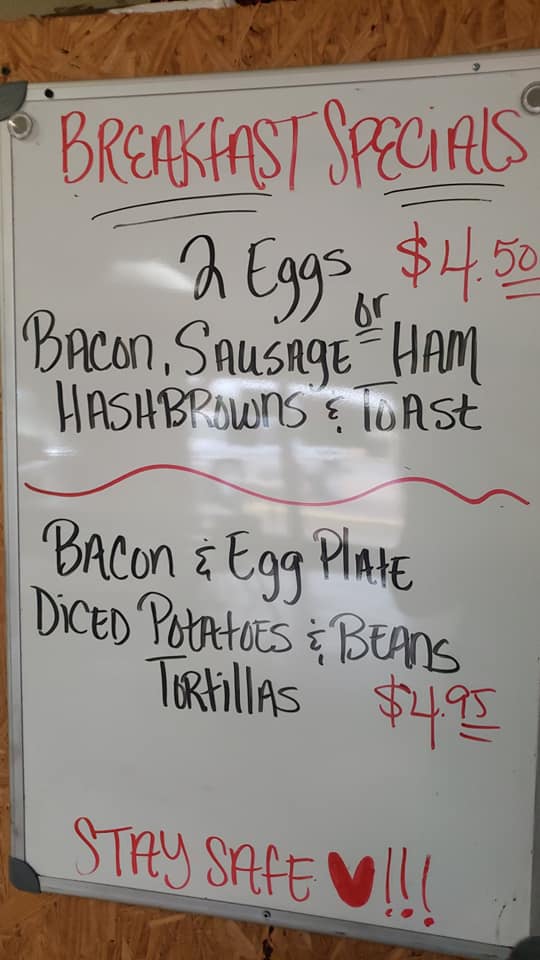 BREAKFAST SPECIALS
2 Eggs $4.50
Bacon, Sausage or Ham
Hashbrowns & Toast
Bacon & Egg Plate
Diced Potatoes & Beans
Tortillas $4.95
STAY SAFE ♥!!!